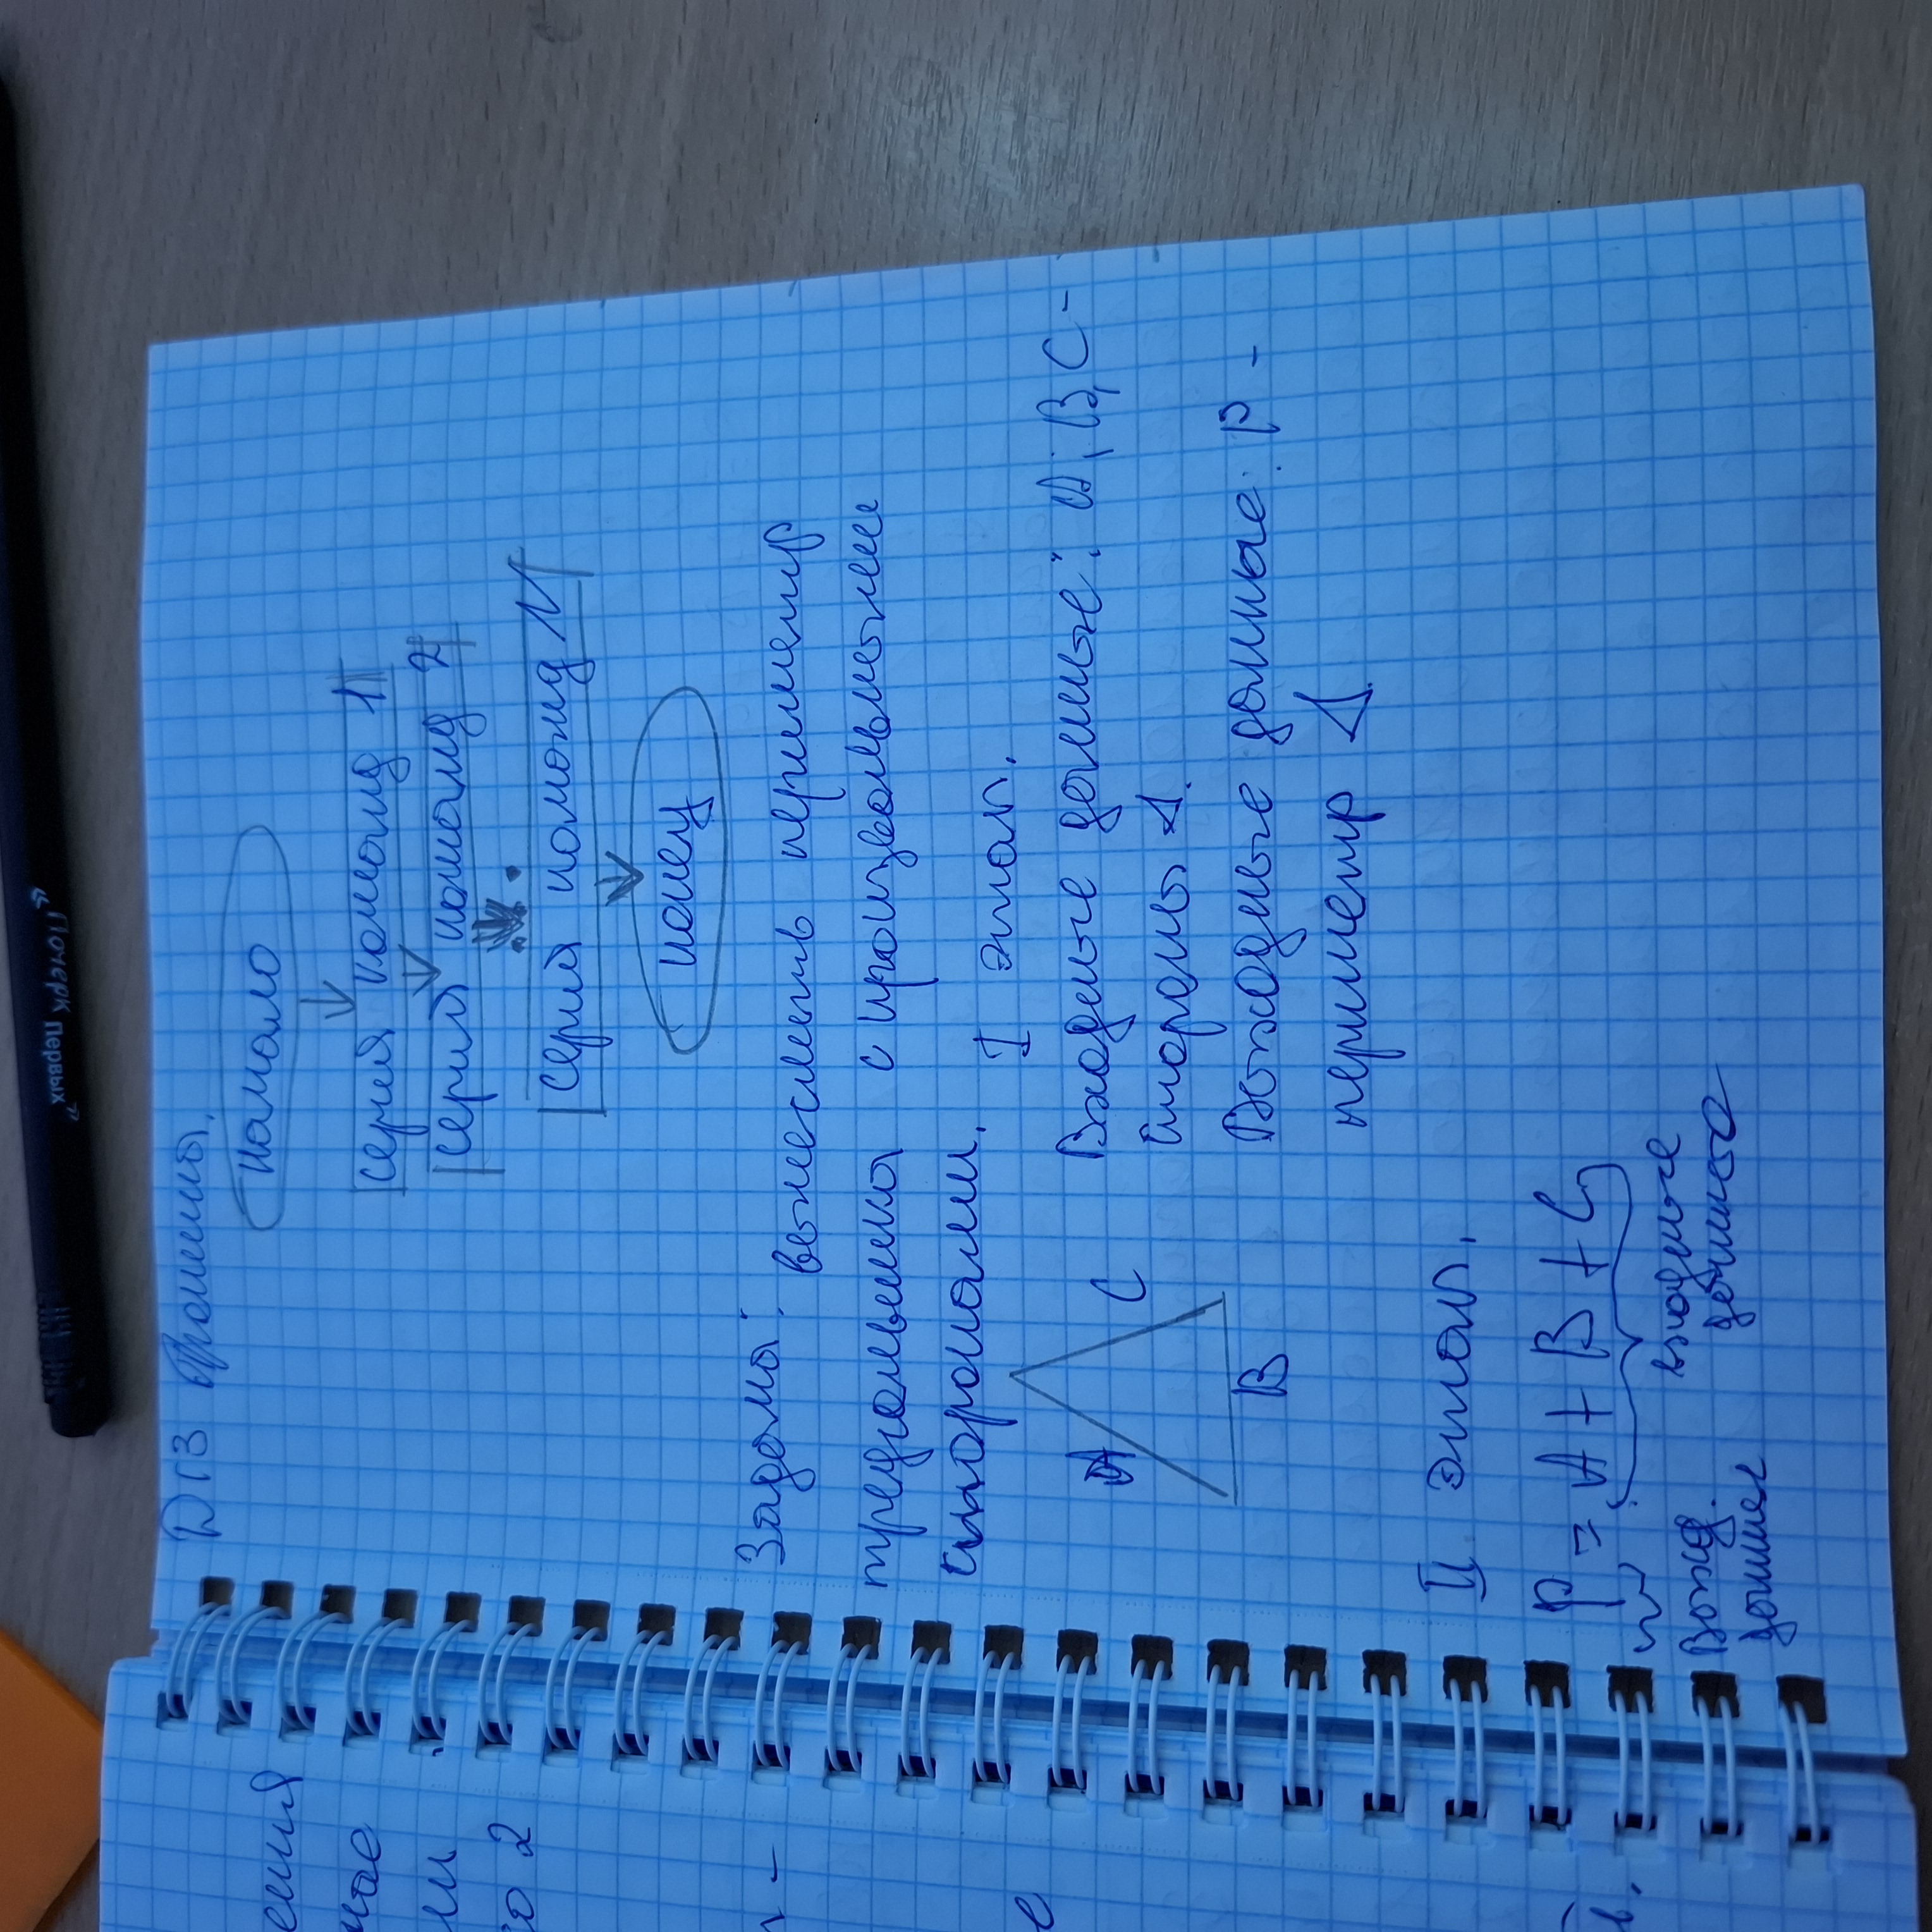 начало
серия команд 1
серия команд 2
серия команд N
конец
Задача: вычислить периметр
треугольника с произвольными
сторонами.
I этап.
A C
B
Входные данные: A, B, C -
стороны Δ.
Выходные данные: P -
периметр Δ.
II этап.
P = A + B + C
Выход. входные
данные данные
ения
ное
ли
2
"Почерк первых"